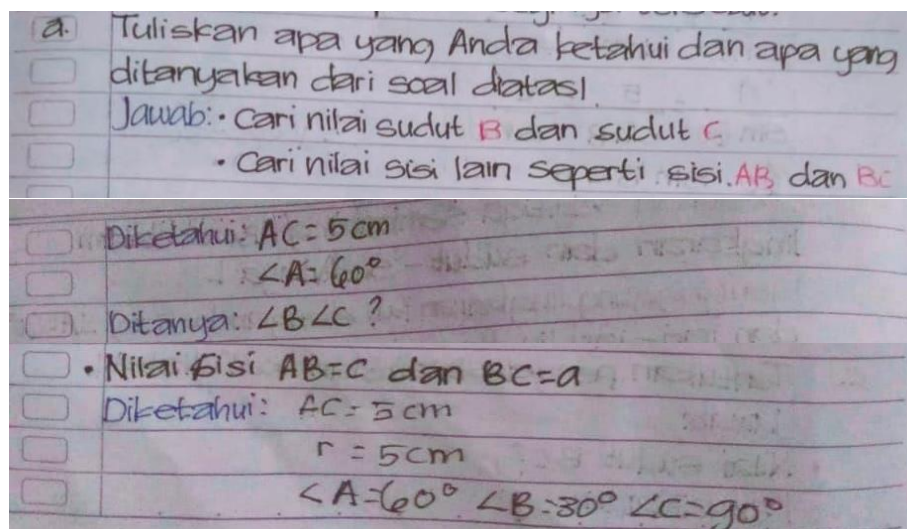 a. Tuliskan apa yang Anda ketahui dan apa yang
ditanyakan dari soal diatas!
Jawab: • Cari nilai sudut B dan sudut C
• Cari nilai sisi lain seperti sisi AB dan BC
Diketahui: AC = 5 cm
∠A = 60°
Ditanya: ∠B ∠C ?
• Nilai sisi AB = c dan BC = a
Diketahui: AC = 5 cm
r = 5 cm
∠A = 60° ∠B = 30° ∠C = 90°